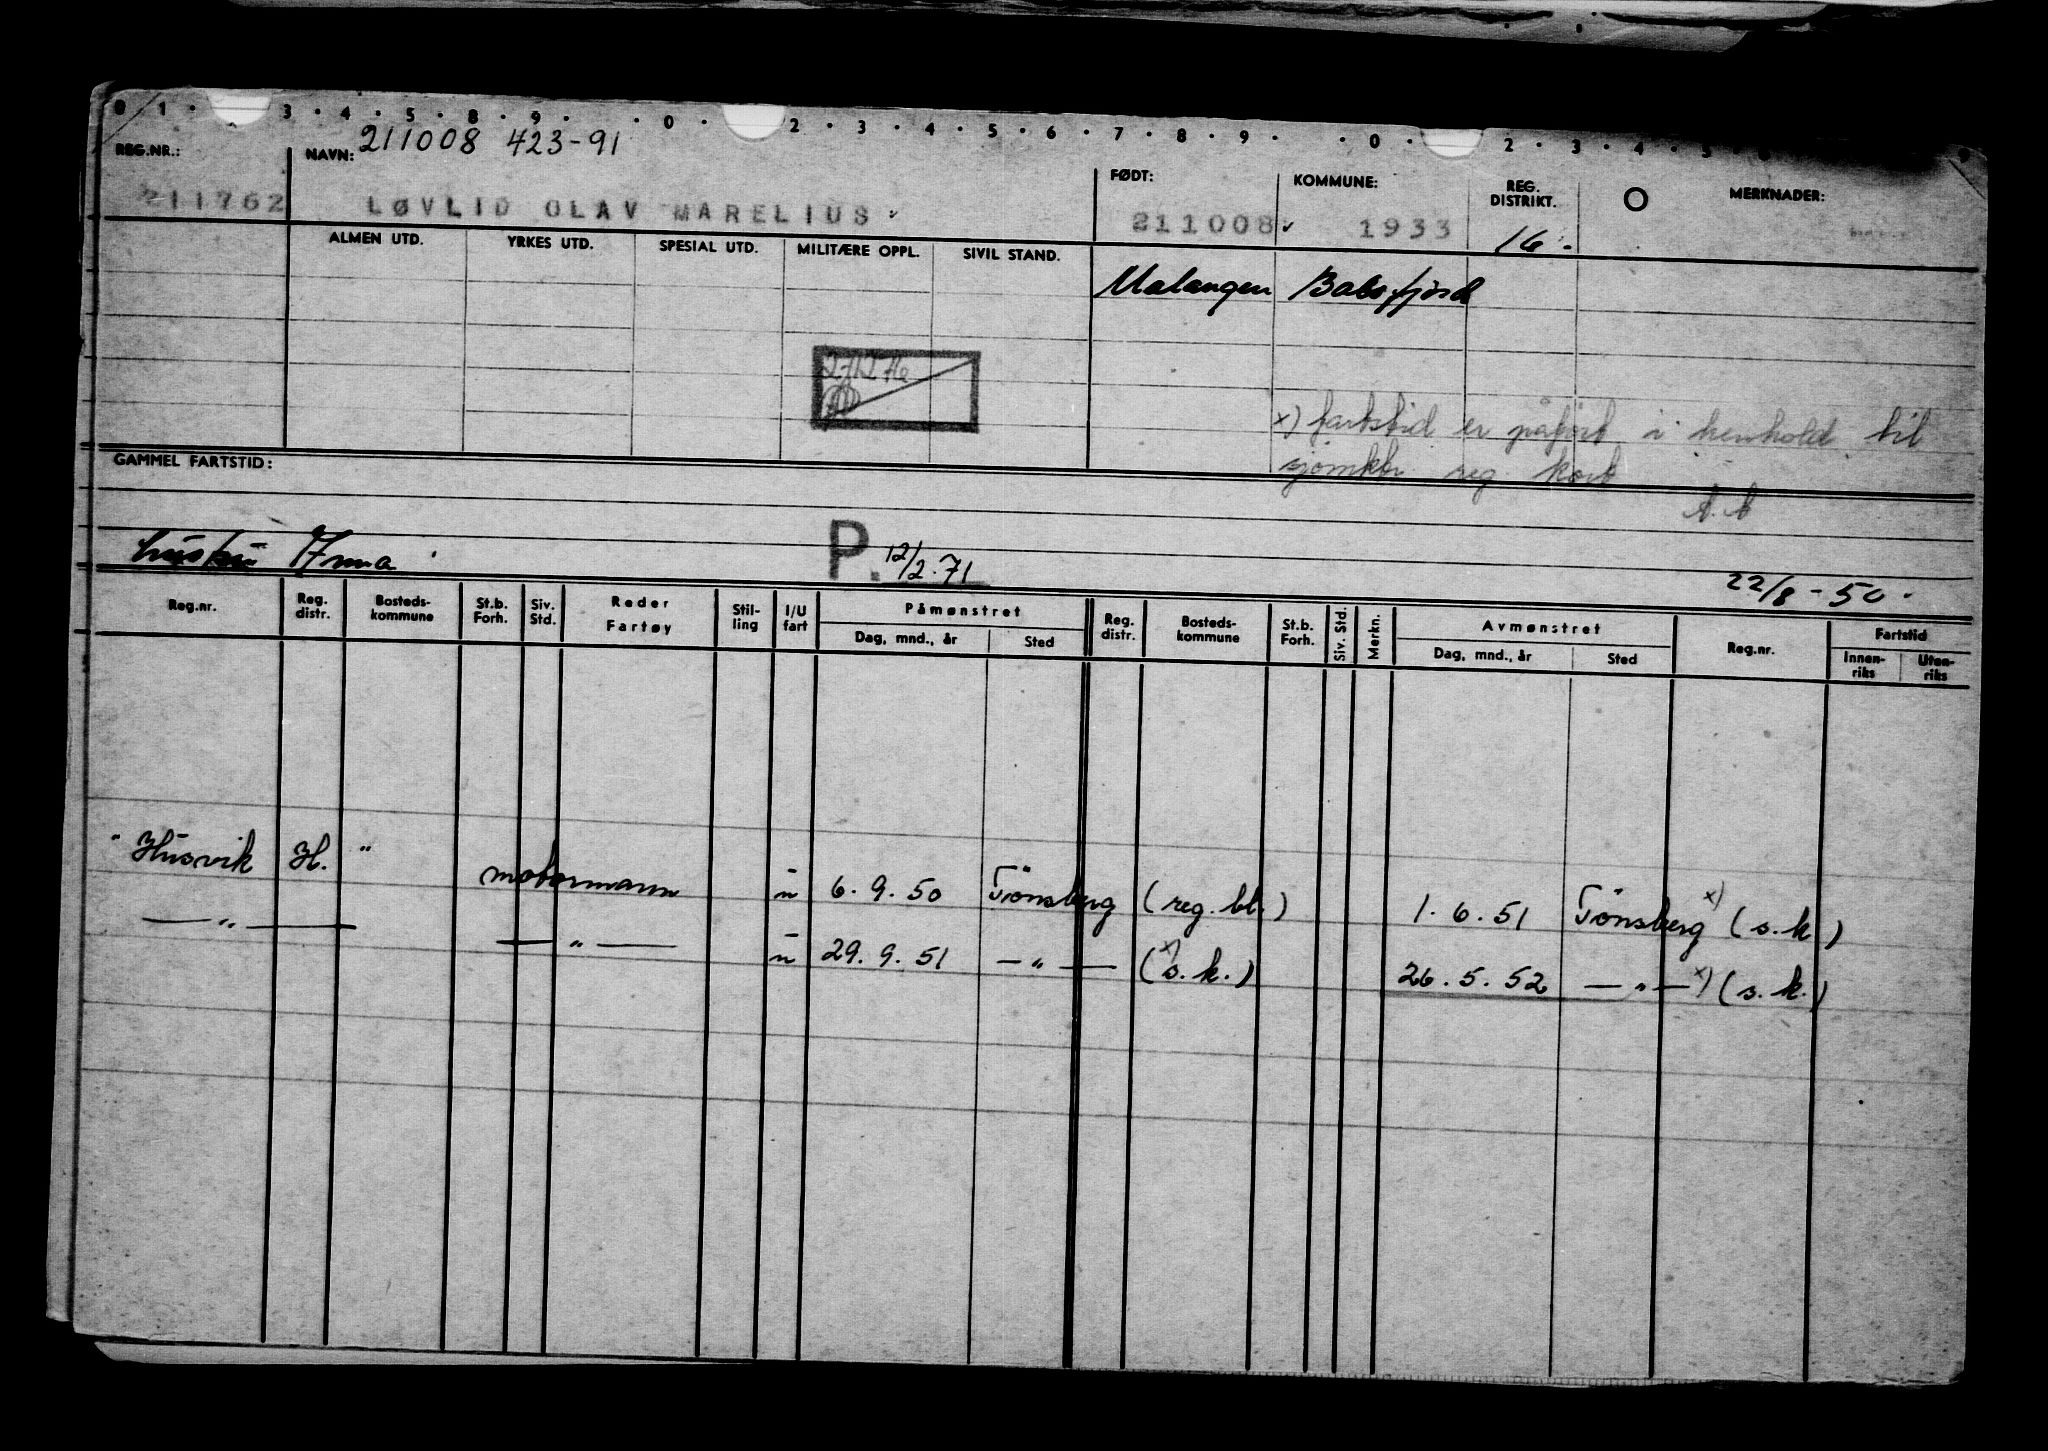 0 · 1 · 3 · 4 · 5 · 8 · 9 · · 0 · 2 · 3 · 4 · 5 · 6 · 7 · 8 · 9 · · 0 · 2 · 3 · 4 · 5
211008 423-91
REG.NR.: NAVN: FØDT: KOMMUNE: REG. DISTRIKT. O MERKNADER:
211762 LØVLID OLAV MARELIUS 211008 1933 16
ALMEN UTD. YRKES UTD. SPESIAL UTD. MILITÆRE OPPL. SIVIL STAND.
Malangen Balsfjord
x) fartstid er påført i henhold til
sjømktr. reg. kort
GAMMEL FARTSTID:
hustru Irma P. 12/2.71 22/8 - 50.
Reg.nr. Reg. distr. Bosteds-kommune St.b. Forh. Siv. Std. Reder Fartøy Stil-ling I/U fart Påmønstret Dag, mnd., år Sted Reg. distr. Bosteds-kommune St.b. Forh. Siv. Std. Merkn. Avmønstret Dag, mnd., år Sted Reg.nr. Fartstid Innen-riks Uten-riks
" Husvik H. " motormann u 6.9.50 Tönsberg (reg.bl.) 1.6.51 Tönsberg x) (s.k.)
— " — — " — u 29.9.51 — " — x) (s.k.) 26.5.52 — " — x) (s.k.)